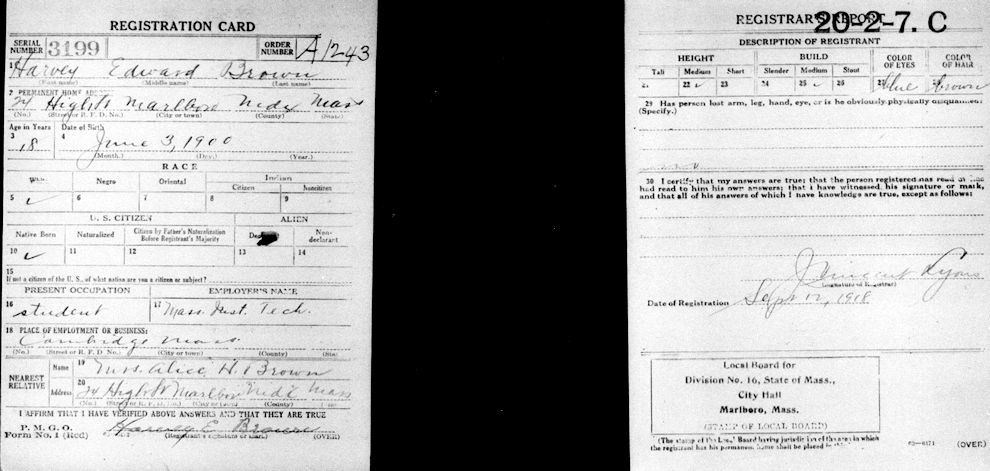 REGISTRATION CARD
SERIAL NUMBER 3199 ORDER NUMBER A1243
1 Harvey Edward Brown
(First name) (Middle name) (Last name)
2 PERMANENT HOME ADDRESS:
24 High St Marlboro Midx Mass
(No.) (Street or R. F. D. No.) (City or town) (County) (State)
Age in Years Date of Birth
3 18 4 June 3, 1900
(Month.) (Day.) (Year.)
RACE
White Negro Oriental Indian
Citizen Noncitizen
5 ✓ 6 7 8 9
U. S. CITIZEN ALIEN
Native Born Naturalized Citizen by Father's Naturalization Before Registrant's Majority Non-declarant
10 ✓ 11 12 13 14
15
If not a citizen of the U. S., of what nation are you a citizen or subject?
PRESENT OCCUPATION EMPLOYER'S NAME
16 student 17 Mass. Inst. Tech.
18 PLACE OF EMPLOYMENT OR BUSINESS:
Cambridge Mass
(No.) (Street or R. F. D. No.) (City or town) (County) (State)
NEAREST RELATIVE Name 19 Mrs. Alice H. Brown
Address 20 24 High St Marlboro Midx Mass
(No.) (Street or R. F. D. No.) (City or town) (County)
I AFFIRM THAT I HAVE VERIFIED ABOVE ANSWERS AND THAT THEY ARE TRUE
P. M. G. O.
Form No. 1 (Red) Harvey E. Brown
(Registrant's signature or mark) (OVER)
REGISTRAR'S REPORT
20-2-7. C
DESCRIPTION OF REGISTRANT
HEIGHT BUILD COLOR OF EYES COLOR OF HAIR
Tall Medium Short Slender Medium Stout
21 22 ✓ 23 24 25 ✓ 26 27 Blue 28 Brown
29 Has person lost arm, leg, hand, eye, or is he obviously physically disqualified?
(Specify.)
30 I certify that my answers are true; that the person registered has read or has
had read to him his own answers; that I have witnessed his signature or mark,
and that all of his answers of which I have knowledge are true, except as follows:
J. Vincent Lyons
(Signature of Registrar)
Date of Registration Sept 12, 1918
Local Board for
Division No. 16, State of Mass.,
City Hall
Marlboro, Mass.
(STAMP OF LOCAL BOARD)
(The stamp of the Local Board having jurisdiction of the area in which
the registrant has his permanent home shall be placed in this box.)
03-6171 (OVER)